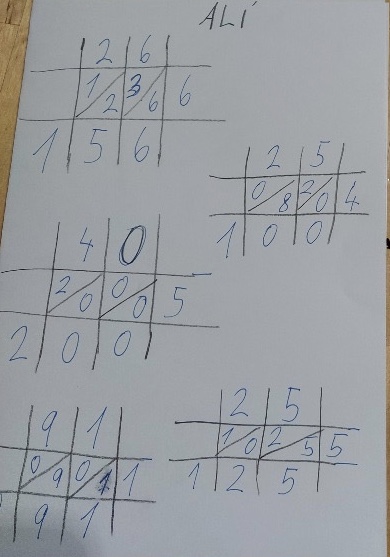 ALİ
2 6
1 2 3 6 6
1 5 6
2 5
0 8 2 0 4
1 0 0
4 0
2 0 0 0 5
2 0 0
9 1
0 9 0 1 1
9 1
2 5
1 0 2 5 5
1 2 5